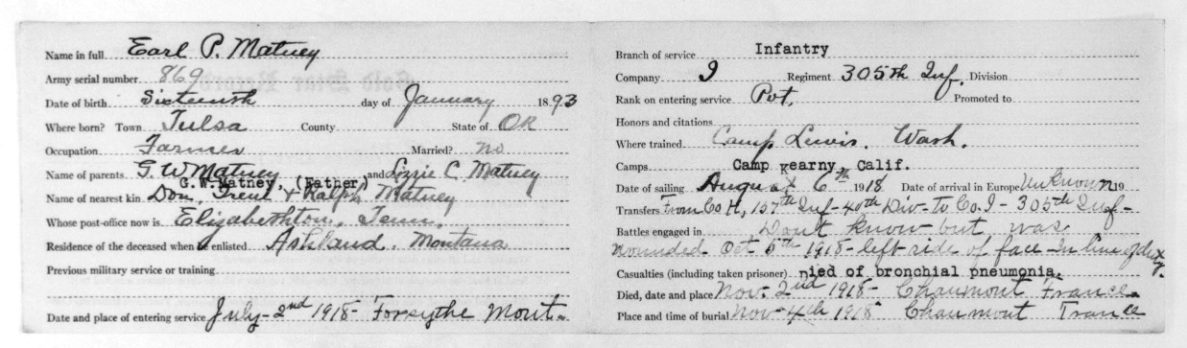 Name in full Earl P. Matney
Army serial number 869
Date of birth Sixteenth day of January 1893
Where born? Town Tulsa County State of OK
Occupation Farmer Married? No
Name of parents G. W. Matney and Lizzie C. Matney
G.W.Matney, (Father)
Name of nearest kin Don, Trent & Ralph Matney
Whose post-office now is Elizabethton, Tenn.
Residence of the deceased when enlisted Ashland, Montana
Previous military service or training
Date and place of entering service July-2nd 1918- Forsythe Mont.
Gold Star Record
Branch of service Infantry
Company I Regiment 305th Inf. Division
Rank on entering service Pvt. Promoted to
Honors and citations
Where trained Camp Lewis. Wash.
Camps Camp Kearny, Calif.
Date of sailing August 6th 1918 Date of arrival in Europe Unknown 19
Transfers From Co H, 157th Inf-40th Div-To Co. I- 305th Inf-
Battles engaged in Don't know but was
wounded Oct 5th 1918-left side of face-In line of duty.
Casualties (including taken prisoner) Died of bronchial pneumonia.
Died, date and place Nov. 2nd 1918- Chaumont France.
Place and time of burial Nov-4th 1918 Chaumont France